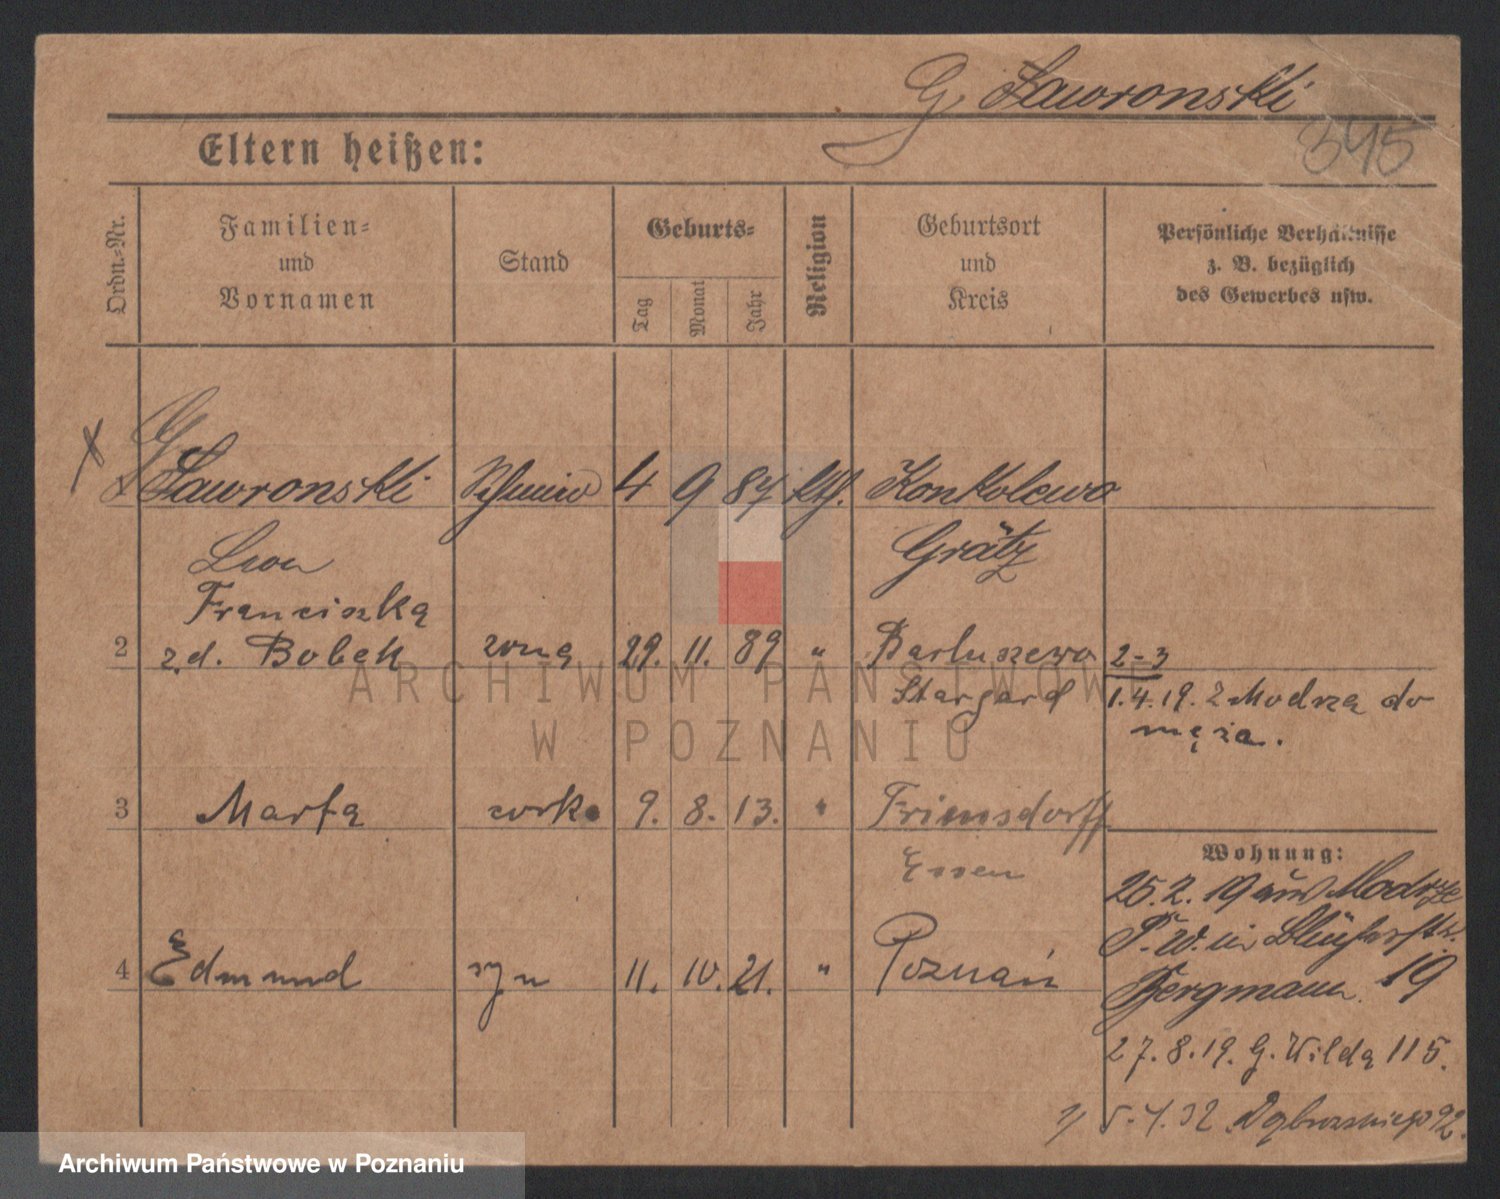 G. Ławronski
345
Eltern heißen:
Ordn.-Nr.
Familien-
und
Vornamen
Stand
Geburts-
Tag
Monat
Jahr
Religion
Geburtsort
und
Kreis
Persönliche Verhältnisse
z. B. bezüglich
des Gewerbes usw.
Ławronski 4 9 87 kth. Konkolewo
Leon Grätz
Franciszka
2 z.d. Bobek żona 29. 11. 89 " Barłuszewo 2-3
Stargard 1.4.19. z Modrza do
męża.
3 Marta córka 9. 8. 13. " Frimsdorff
Wohnung:
Essen
25.2.19 aus Modrze
P. W. in
4 Edmund syn 11. 10. 21. " Poznań
Bergmann. 19
27.8.19. G. Wilda 115.
Dąbrowskiego 92.
ARCHIWUM PAŃSTWOWE
W POZNANIU
Archiwum Państwowe w Poznaniu